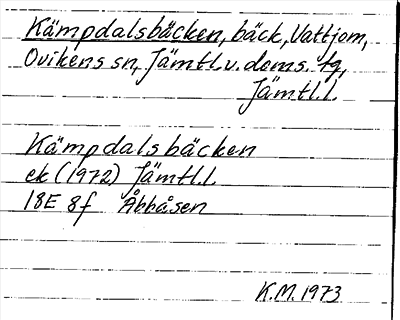 Kämpdalsbäcken, bäck, Vattjom,
Ovikens sn, Jämtl. v. doms. tg,
Jämtl.l.
Kämpdalsbäcken
ek (1972) Jämtl.l.
18E 8f Åkkåsen
K.M. 1973